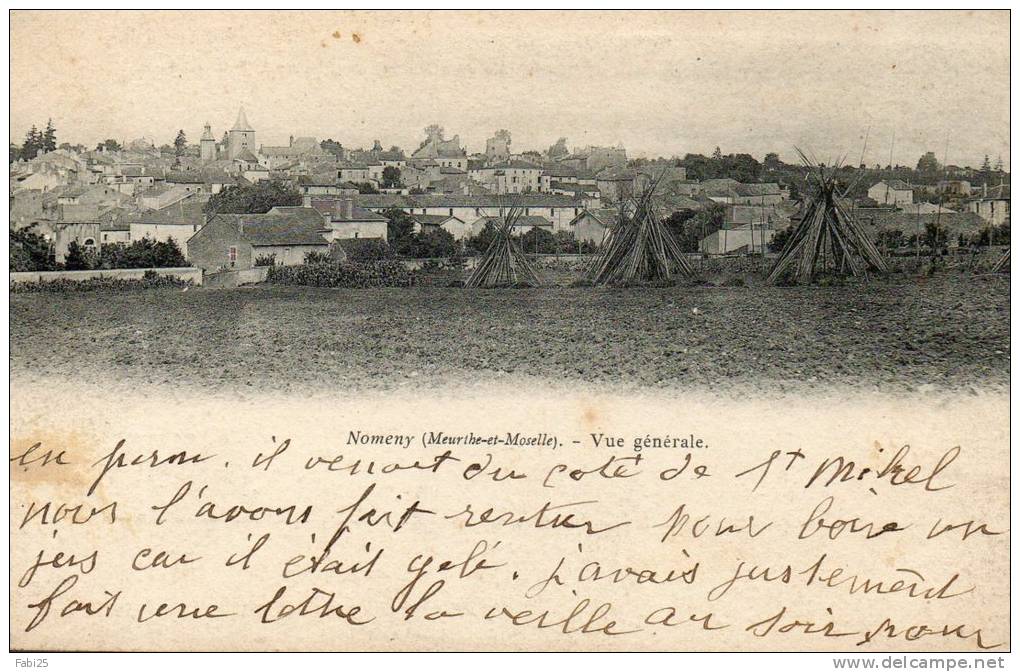 Nomeny (Meurthe-et-Moselle). - Vue générale.
il venoit du coté de St Mikel
nous l'avons fait rentrer pour boire un
jus car il était gelé. j'avais justement
fait une Lothe la veille au soir, nous
Fabi25
www.delcampe.net